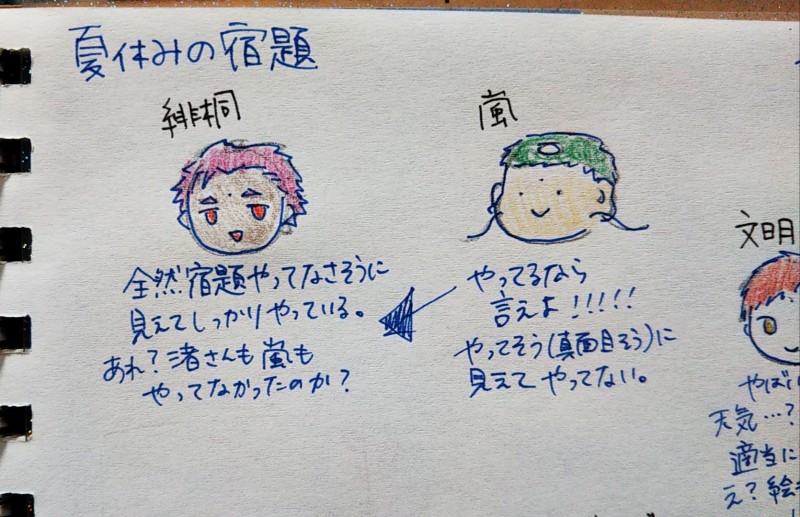 夏休みの宿題
緋桐
全然宿題やってなさそうに
見えてしっかりやっている。
あれ?渚さんも嵐も
やってなかったのか?
嵐
やってるなら
言えよ!!!!!
やってそう(真面目そう)に
見えてやってない。
文明
やばい
天気…?
適当に
え?絵